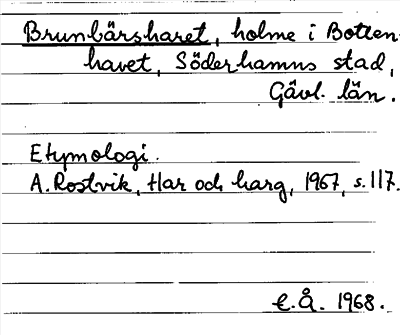 Brunbärsharet, holme i Botten-
havet, Söderhamns stad,
Gävl. län.
Etymologi.
A. Rostvik, Har och harg, 1967, s. 117.
E.Å. 1968.